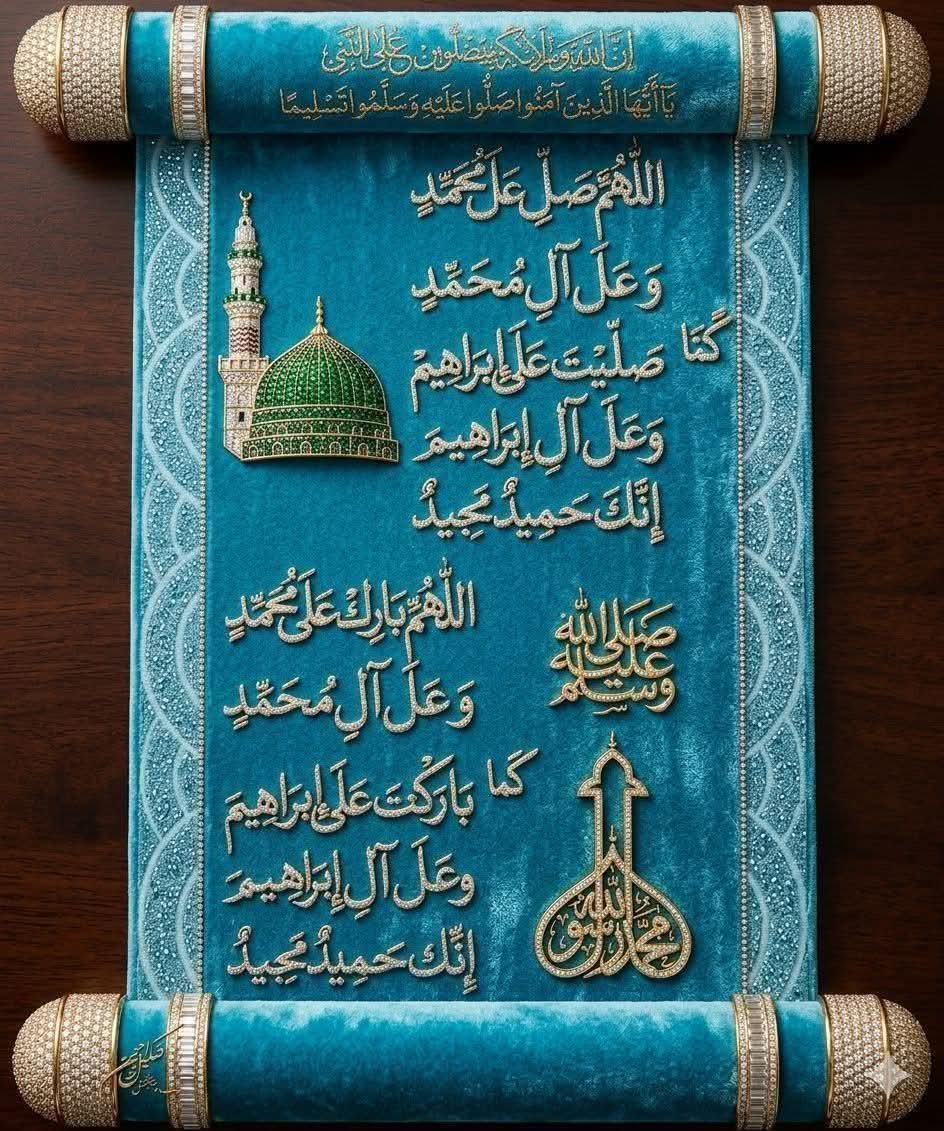 إنَّ اللَّهَ وَمَلَائِكَتَهُ يُصَلُّونَ عَلَى النَّبِي
يَا أَيُّهَا الَّذِينَ آمَنُوا صَلُّوا عَلَيْهِ وَسَلِّمُوا تَسْلِيمًا
اللَّهُمَّ صَلِّ عَلَ مُحَمَّدٍ
وَعَلَ آلِ مُحَمَّدٍ
كَمَا صَلَّيْتَ عَلَى إِبْرَاهِيْمَ
وَعَلَ آلِ إِبْرَاهِيمَ
إِنَّكَ حَمِيدٌ مَجِيدٌ
اللَّهُمَّ بَارِكْ عَلَى مُحَمَّدٍ
وَعَلَ آلِ مُحَمَّدٍ
كَمَا بَارَكْتَ عَلَى إِبْرَاهِيمَ
وعَلَ آلِ إِبْرَاهِيمَ
إِنَّكَ حَمِيدٌ مَجِيدٌ
صَلَى اللّٰه
عليه
وسلم
محمد رسول الله